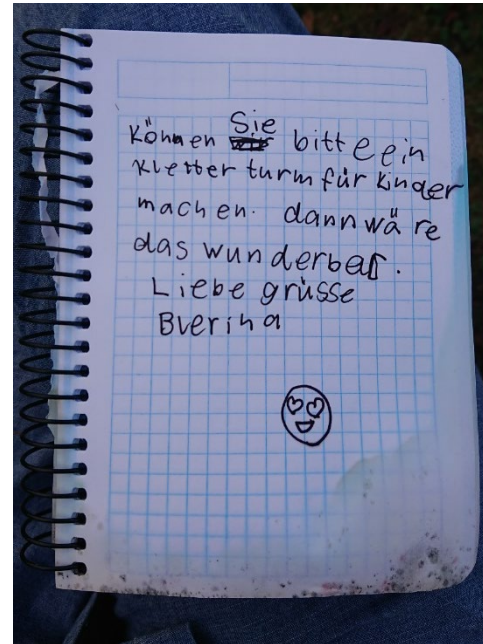 Können Sie bitte ein
Kletter turm für Kinder
machen. dann wäre
das wunderbar.
Liebe grüsse
Blerina